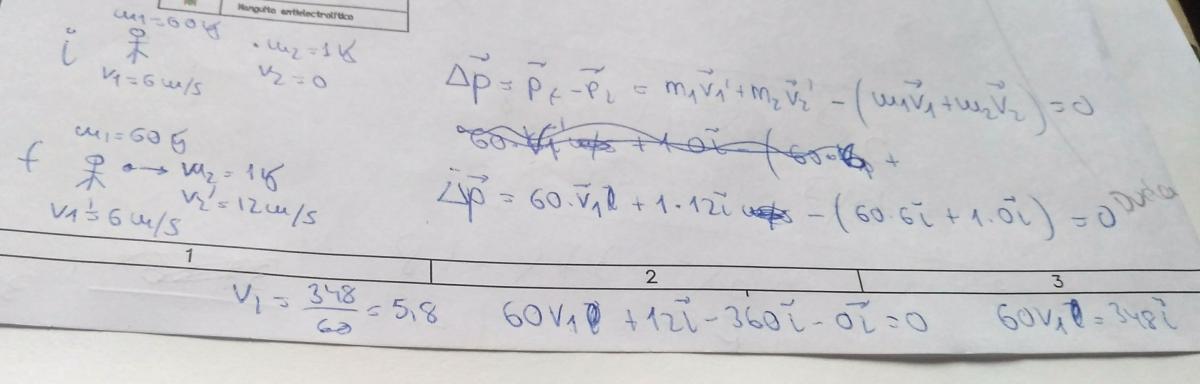 Manguito antielectrolítico
m1=60 kg
i
· m2=1 kg
v1=6 m/s
v2=0
Δp⃗ = p⃗f - p⃗i = m1v⃗1' + m2v⃗2' - (m1v⃗1 + m2v⃗2) = 0
m1=60 kg
f
m2=1 kg
v2'=12 m/s
v1'=6 m/s
Δp⃗ = 60·v⃗1 + 1·12i⃗ - (60·6i⃗ + 1·0i⃗) = 0 Duda
1 2 3
v1 = 348/60 = 5,8
60v1 + 12i⃗ - 360i⃗ - 0i⃗ = 0
60v1 = 348i⃗